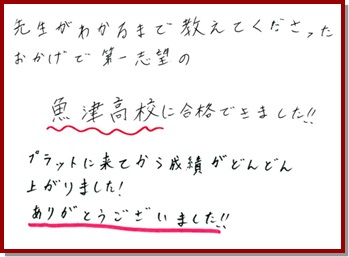 先生がわかるまで教えてくださった
おかげで第一志望の
魚津高校に合格できました!!
プラットに来てから成績がどんどん
上がりました!
ありがとうございました!!